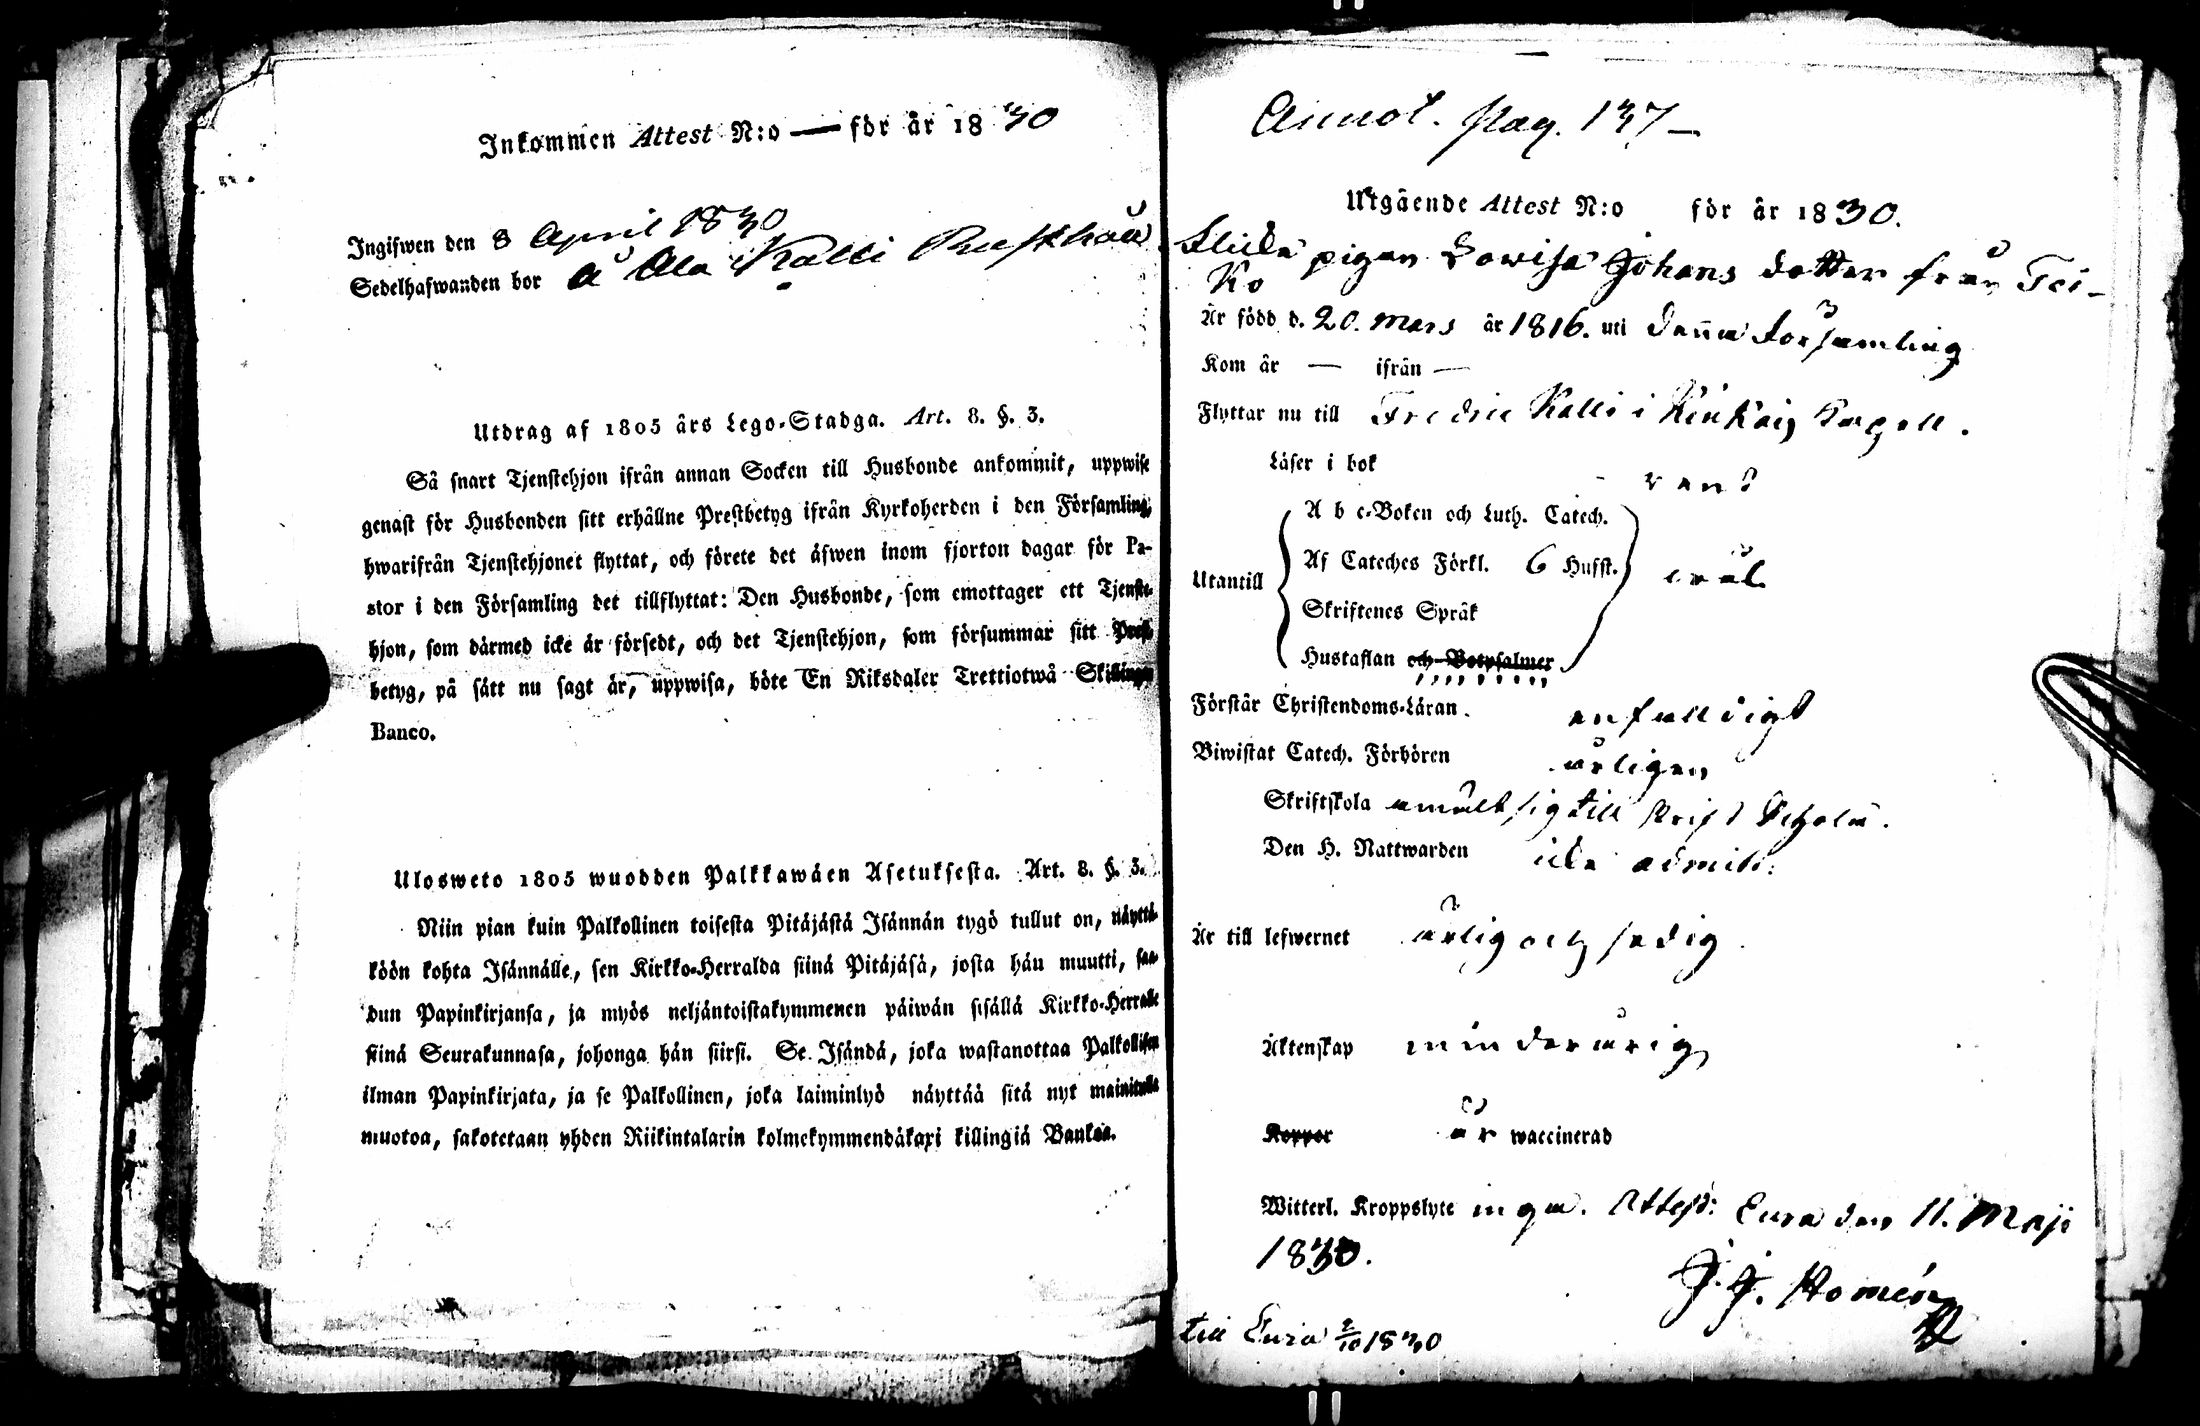 Inkommen Attest N:o — för år 1830
Ingifwen den 8 April 1830
Sedelhafwanden bor å Ala Kalli Rusthåll
Utdrag af 1805 års Lego-Stadga. Art. 8. §. 3.
Så snart Tjenstehjon ifrån annan Socken till Husbonde ankommit, uppwise
genast för Husbonden sitt erhållne Prestbetyg ifrån Kyrkoherden i den Församling,
hwarifrån Tjenstehjonet flyttat, och förete det äfwen inom fjorton dagar för Pa-
stor i den Församling det tillflyttat: Den Husbonde, som emottager ett Tjenste-
hjon, som därmed icke är försedt, och det Tjenstehjon, som försummar sitt Prest-
betyg, på sätt nu sagt är, uppwisa, böte En Riksdaler Trettiotwå Skillingar
Banco.
Ulosweto 1805 wuodden Palkkawäen Asetuksesta. Art. 8. §. 3.
Niin pian kuin Palkollinen toisesta Pitäjästä Isännän tygö tullut on, näyttä-
köön kohta Isännälle, sen Kirkko-Herralda siinä Pitäjäsä, josta hän muutti, saa-
dun Papinkirjansa, ja myös neljäntoistakymmenen päiwän sisällä Kirkko-Herralle
siinä Seurakunnasa, johonga hän siirsi. Se Isändä, joka wastanottaa Palkollisen
ilman Papinkirjata, ja se Palkollinen, joka laiminlyö näyttää sitä nyt mainitulla
muotoa, sakotetaan yhden Riikintalarin kolmekymmendäkaxi killingiä Bankoa.
Annot. pag. 137 —
Utgående Attest N:o för år 1830.
pigan Lowisa Johans dotter från Tei-
ko
Är född d. 20. Mars år 1816. uti denna Församling
Kom år — ifrån —
Flyttar nu till Fredric Kalli i Kiukais Capell.
Läser i bok rent
A b c-Boken och Luth. Catech.
Af Cateches Förkl. 6 Hufst.
Utantill
Skriftenes Språk
Hustaflan och Botpsalmer
Förstår Christendoms-Läran. enfalldigt
Biwistat Catech. Förhören årligen
Skriftskola anmält sig till Skrift Schola.
Den H. Nattwarden icke admitt:
Är till lefwernet ärlig och sedig.
Äktenskap minderårig
Koppor är waccinerad
Witterl. Kroppslyte inga. Attest: Eura den 11. Maji
1830.
J. J. Homén
till Eura 2/10 1830